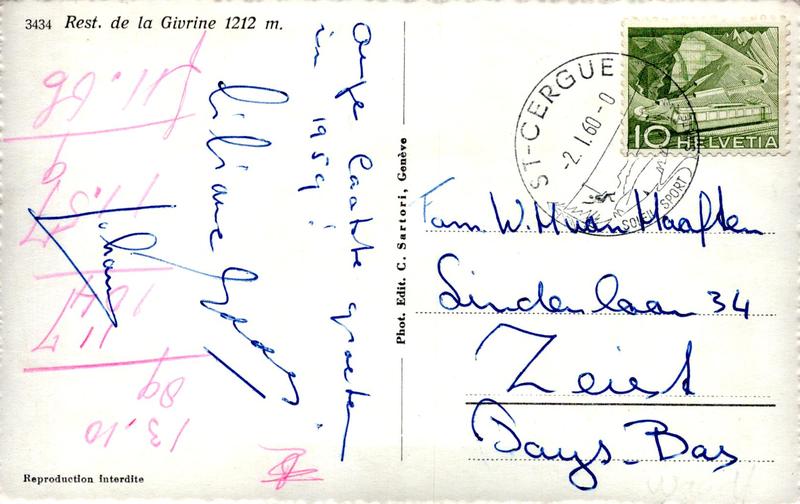 3434 Rest. de la Givrine 1212 m.
Onze laatste groeten
in 1959!
Liliane
Johan
Phot. Edit. C. Sartori, Genève
Reproduction interdite
ST-CERGUE
-2.1.60-0
SOLEIL SPORT
10 HELVETIA
Fam. W. M. van Haaften
Lindenlaan 34
Zeist
Pays-Bas
11.57
11.7
89
13.10